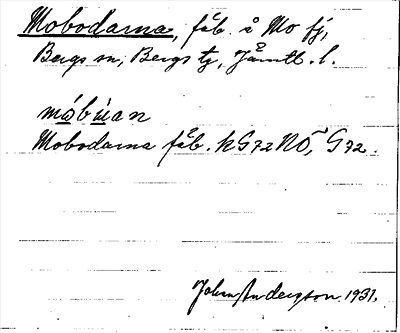 Mobodarna, fäb. å Mo fj,
Bergs sn, Bergs tg, Jämtl. l.
Mobodarna fäb. kG72NÖ, G72.
John Anderzon 1931.